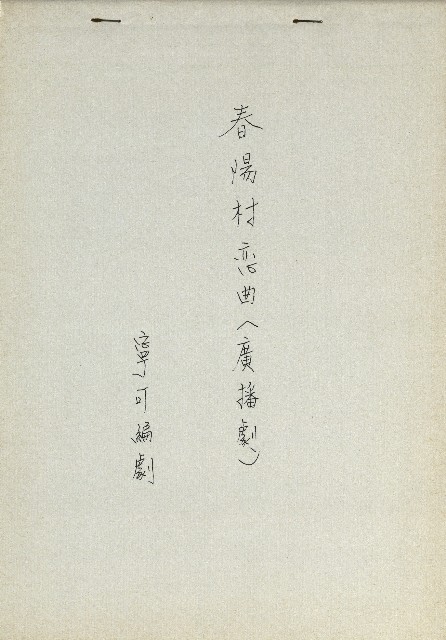 春陽村恋曲(廣播劇)
寧可編劇